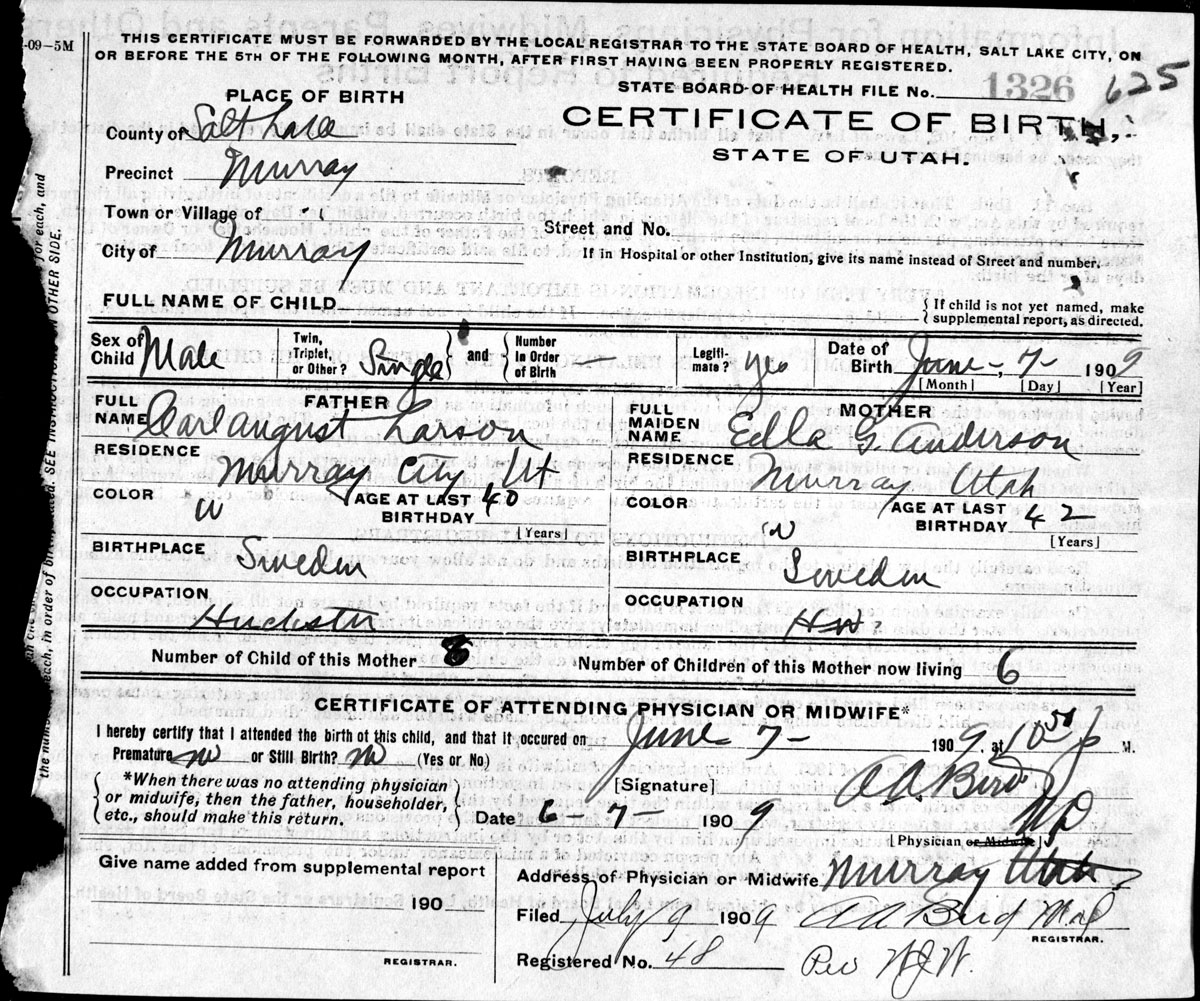 -09-5M
THIS CERTIFICATE MUST BE FORWARDED BY THE LOCAL REGISTRAR TO THE STATE BOARD OF HEALTH, SALT LAKE CITY, ON
OR BEFORE THE 5TH OF THE FOLLOWING MONTH, AFTER FIRST HAVING BEEN PROPERLY REGISTERED.
STATE BOARD OF HEALTH FILE No. 1326 625
PLACE OF BIRTH
CERTIFICATE OF BIRTH,
STATE OF UTAH.
County of Salt Lake
Precinct Murray
Town or Village of
Street and No.
City of Murray
If in Hospital or other Institution, give its name instead of Street and number.
FULL NAME OF CHILD
{ If child is not yet named, make
supplemental report, as directed.
Sex of Child Male
Twin, Triplet, or Other? Single
and
Number in Order of Birth —
Legiti- mate? yes
Date of Birth June 7 1909
[Month] [Day] [Year]
FATHER
FULL NAME Carl August Larson
RESIDENCE Murray City Ut
COLOR W
AGE AT LAST BIRTHDAY 40
[Years]
BIRTHPLACE Sweden
OCCUPATION
MOTHER
FULL MAIDEN NAME Edla G. Anderson
RESIDENCE Murray Utah
COLOR W
AGE AT LAST BIRTHDAY 42
[Years]
BIRTHPLACE Sweden
OCCUPATION HW
Number of Child of this Mother 8
Number of Children of this Mother now living 6
CERTIFICATE OF ATTENDING PHYSICIAN OR MIDWIFE*
I hereby certify that I attended the birth of this child, and that it occured on June 7- 1909, at 10 P M.
Premature no or Still Birth? no (Yes or No)
*When there was no attending physician
or midwife, then the father, householder,
etc., should make this return.
[Signature] A A Bird
MD
Date 6 7 1909
[Physician or Midwife]
Give name added from supplemental report
190
REGISTRAR.
Address of Physician or Midwife Murray Utah
Filed July 9 1909 A A Bird
REGISTRAR.
Registered No. 48 Per W.J.W.
the number of each, in order of birth, stated. SEE INSTRUCTIONS ON OTHER SIDE.
for each, and